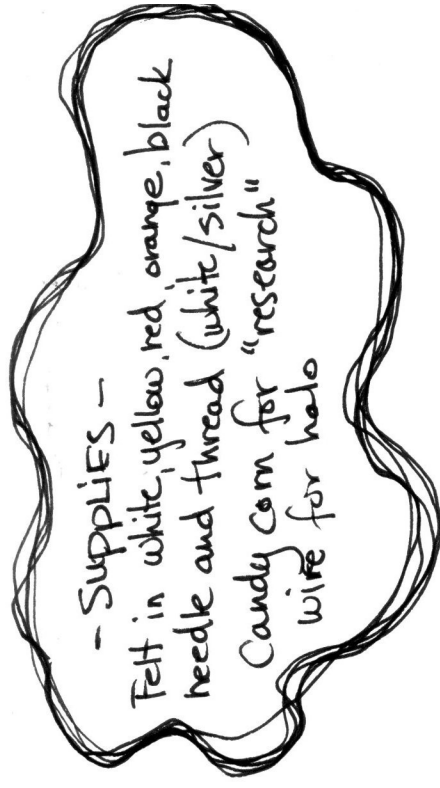 - SUPPLiES -
Felt in white, yellow, red, orange, black
needle and thread (white/silver)
Candy corn for "research"
wire for halo